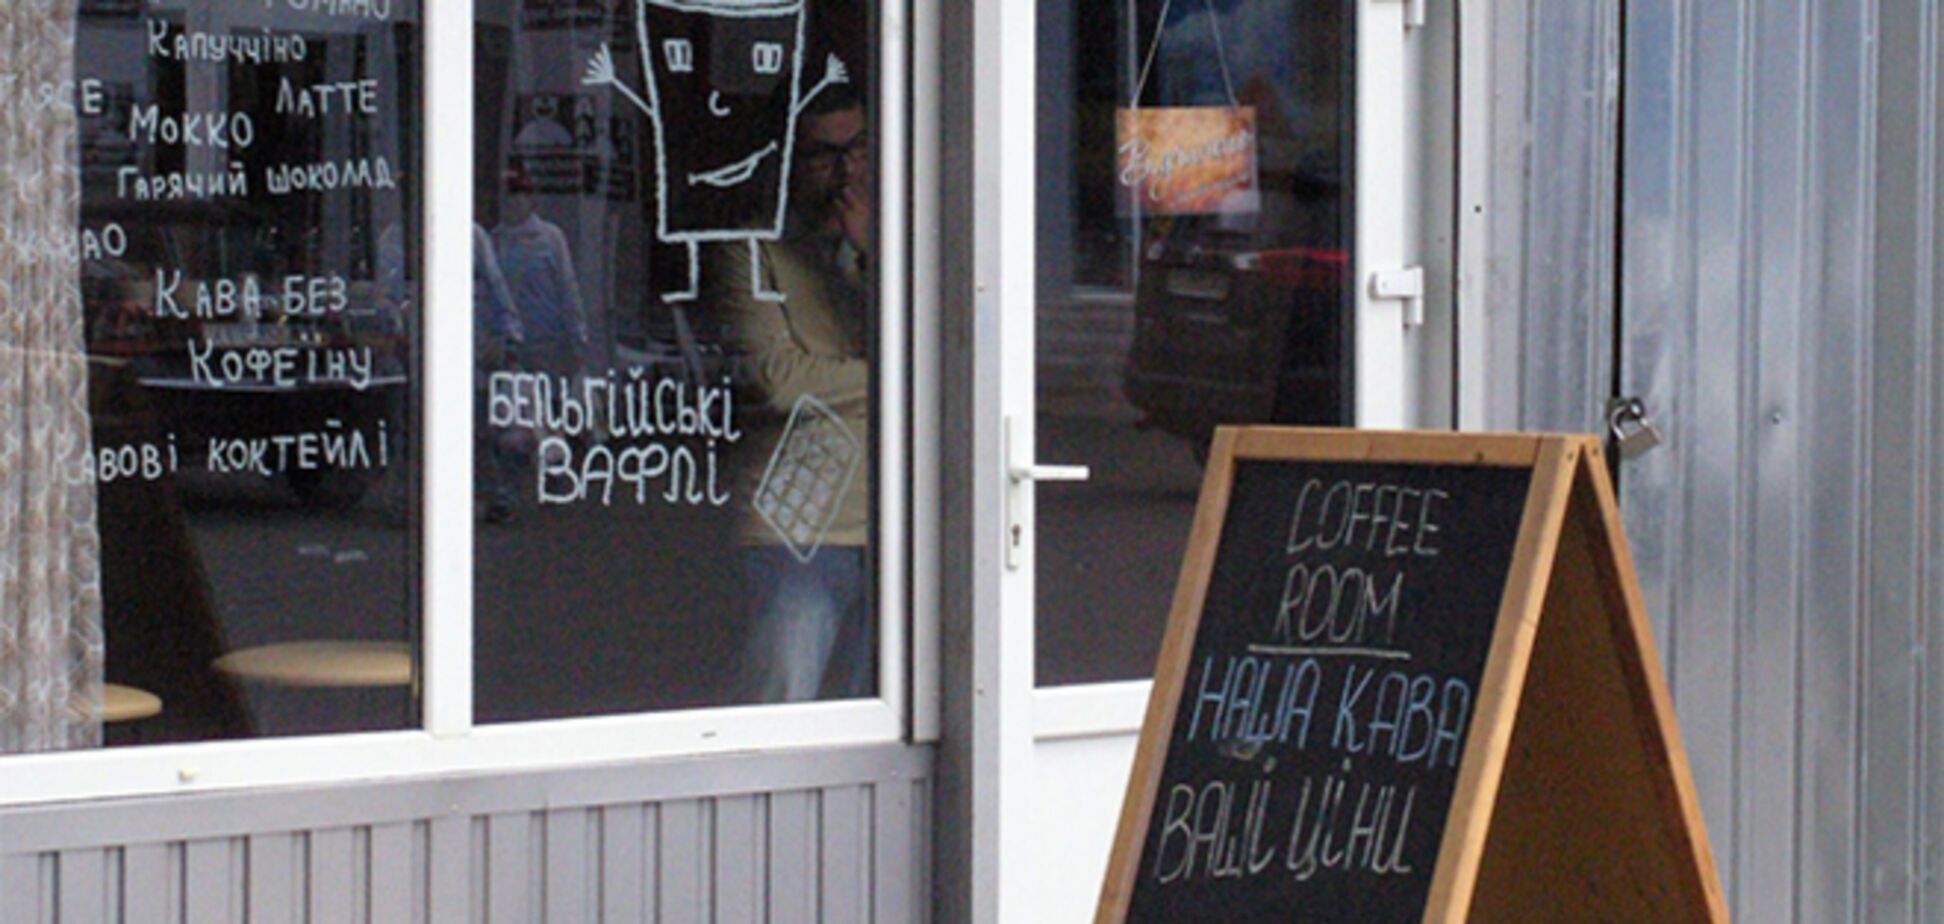 Капуччіно
Латте
Мокко
Гарячий шоколад
Кава без
Кофеїну
коктейлі
Бельгійські
вафлі
COFFEE
ROOM
НАША КАВА
ВАШІ ЦІНИ